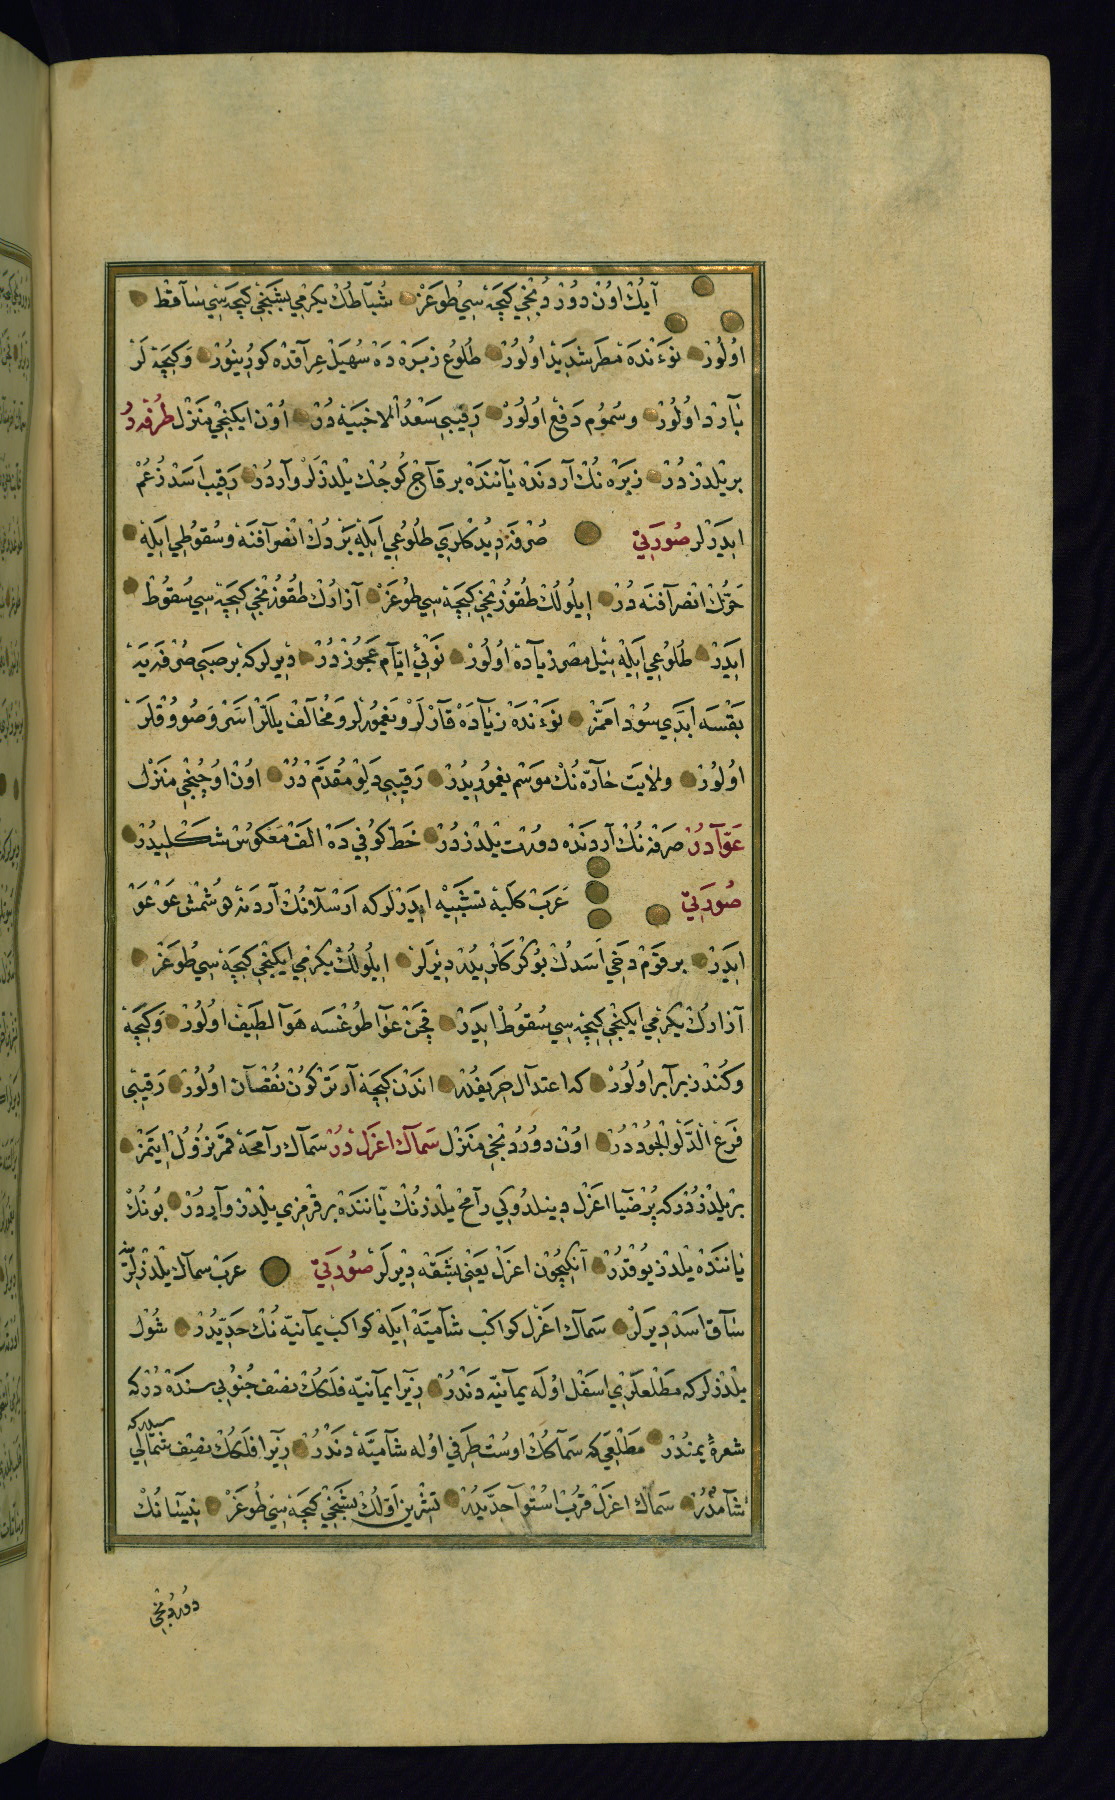 آيُكْ اوُنْ دوُرْدُنْجِي كِيجَه سِي طوُغَرْ شُبَاطُكْ يِكِرْمِي بَشَنْجِي كِيجَه سِي سَاقِطْ
اوُلوُرْ نوَءنْدَه مَطَر شَدِيدْ اوُلوُرْ طُلوُعِ زبرَه دَه سُهَيلْ عِراقدَه كورِينوُرْ وَ كِيجَه لَرْ
بَارِدْ اوُلوُرْ و سُموُم دَفِعْ اوُلوُرْ رَقِيبِي سَعْدُ الاخبيَه دُرْ اوُنْ ايكِنْجِي مَنْزِلْ طُرْفَه دُرْ
بِرْ يِلْدِزْ دُرْ زبرَه نُكْ آرْدِنْدَه يَانِنْدَه بِرْقَاجْ كُوجُكْ يِلْدِزْلَرْ وَارْدُرْ رَقِيبِ اَسَدْ زُعُمْ
ايدَرْلَر صُورَتِي صُرْفَه دِيدكْلرِي طُلوُعِي ايلَه بَرْدُكْ انصرَافنَه و سُقوُطِي ايلَه
حَرُّكْ انصرَافنَه دُرْ ايلُولُكْ طُقوُزنْجِي كِيجَه سِي طوُغَرْ آزارُكْ طُقوُزنْجِي كِيجَه سِي سُقوُطْ
ايدَرْ طُلوُعِي ايلَه نِيلِ مصر زيَادَه اوُلوُرْ نَوئِي ايَّامِ عَجُوزدُرْ دِيرلر كه بر صَبِي صُرفَه يَه
بَقسَه ابَدِي سُوْد امَمَزْ نوَءنْدَه زيَادَه قَارْلَرْ و يَغمُورلَر و مُخَالفْ يللَر اسَر و صُووُقلَر
اوُلوُرْ ولايَتِ حَارَّه نُكْ مَوسمِ يغمُورِيدُرْ رَقِيبِي دَلوِ مُقَدَّم دُرْ اوُنْ اوُچُنْجِي مَنْزِلْ
عَوَّادُرْ صَرفَه نُكْ آردندَه دورت يِلْدِزدُرْ خَطِّ كُوفِيدَه الفِ مَعكُوسْ شَكلِيدُرْ
صُورَتِي عَرَبْ كلَابَه تشبِيه ايدَرلر كه ارسلَانُكْ آردنَه دوُشمش عَوْ عَوْ
ايدَرْ بر قَوْم دَخِي اَسَدُكْ بُوكرُكلرِيدُرْ دِيرلَرْ ايلُولُكْ يِكِرْمِي ايكِنْجِي كِيجَه سِي طوُغَرْ
آزارُكْ يِكِرْمِي ايكِنْجِي كِيجَه سِي سُقوُطْ ايدَرْ قَچَنْ عوَّا طوُغسَه هَوَا لَطِيفْ اوُلوُرْ وَ كِيجَه
و كُندُزْ برَابر اوُلوُرْ كه اعتدالِ خريفدُرْ اندَنْ كِيجَه آرتَرْ كوُنْ نُقصَان اوُلوُرْ رَقِيبِي
فَرَغ الدَّلْوِ دُرْ اوُنْ دوُردُنْجِي مَنْزِل سَمَاكِ اعزَل دُرْ سَمَاكِ رَامحَه قمَر نزُولْ ايتمَزْ
بر يلدزدُرْ كه پُرْضيَا اعزَل دِينلدُوكِي رَامِحْ يلدزنُكْ يَانندَه بر قرمزِي يلدز وَاردُرْ بُونُكْ
يَانندَه يلدز يُوقدُرْ آنكِچُون اعزَلْ يَعنِي بَشقَه دِيرلَرْ صُورَتِي عَرَبْ سماك يلدزلَرينه
سَاقِ اسَدْ دِيرلَرْ سَمَاكِ اعزَل كوَاكبِ شَاميَّة ايلَه كوَاكبِ يمَانيَه نُكْ حَدِّيدُرْ شُوْل
يلدزلَر كه مَطلعلَرِي اسفَل اوُلَه يمَانيَّه دندُرْ زِيرَا يمَانيَه فلَكُكْ نصفِ جُنُوبِي سندَه دُر كه
شعرَى يمندُرْ مَطلَعِي كه سَمَاكُكْ اوست طَرَفِي اوُلَه شَاميَّه دندُرْ زِيرَا فلَكُكْ نصفِ شمَالِي سيدر كه
شامدُرْ سَمَاكِ اعزَلْ قُربِ استوَا حدِّيدُرْ تِشرِينِ اوَّلُكْ بَشَنْجِي كِيجَه سِي طوُغَرْ نِيسَانُكْ
دوُردُنْجِي